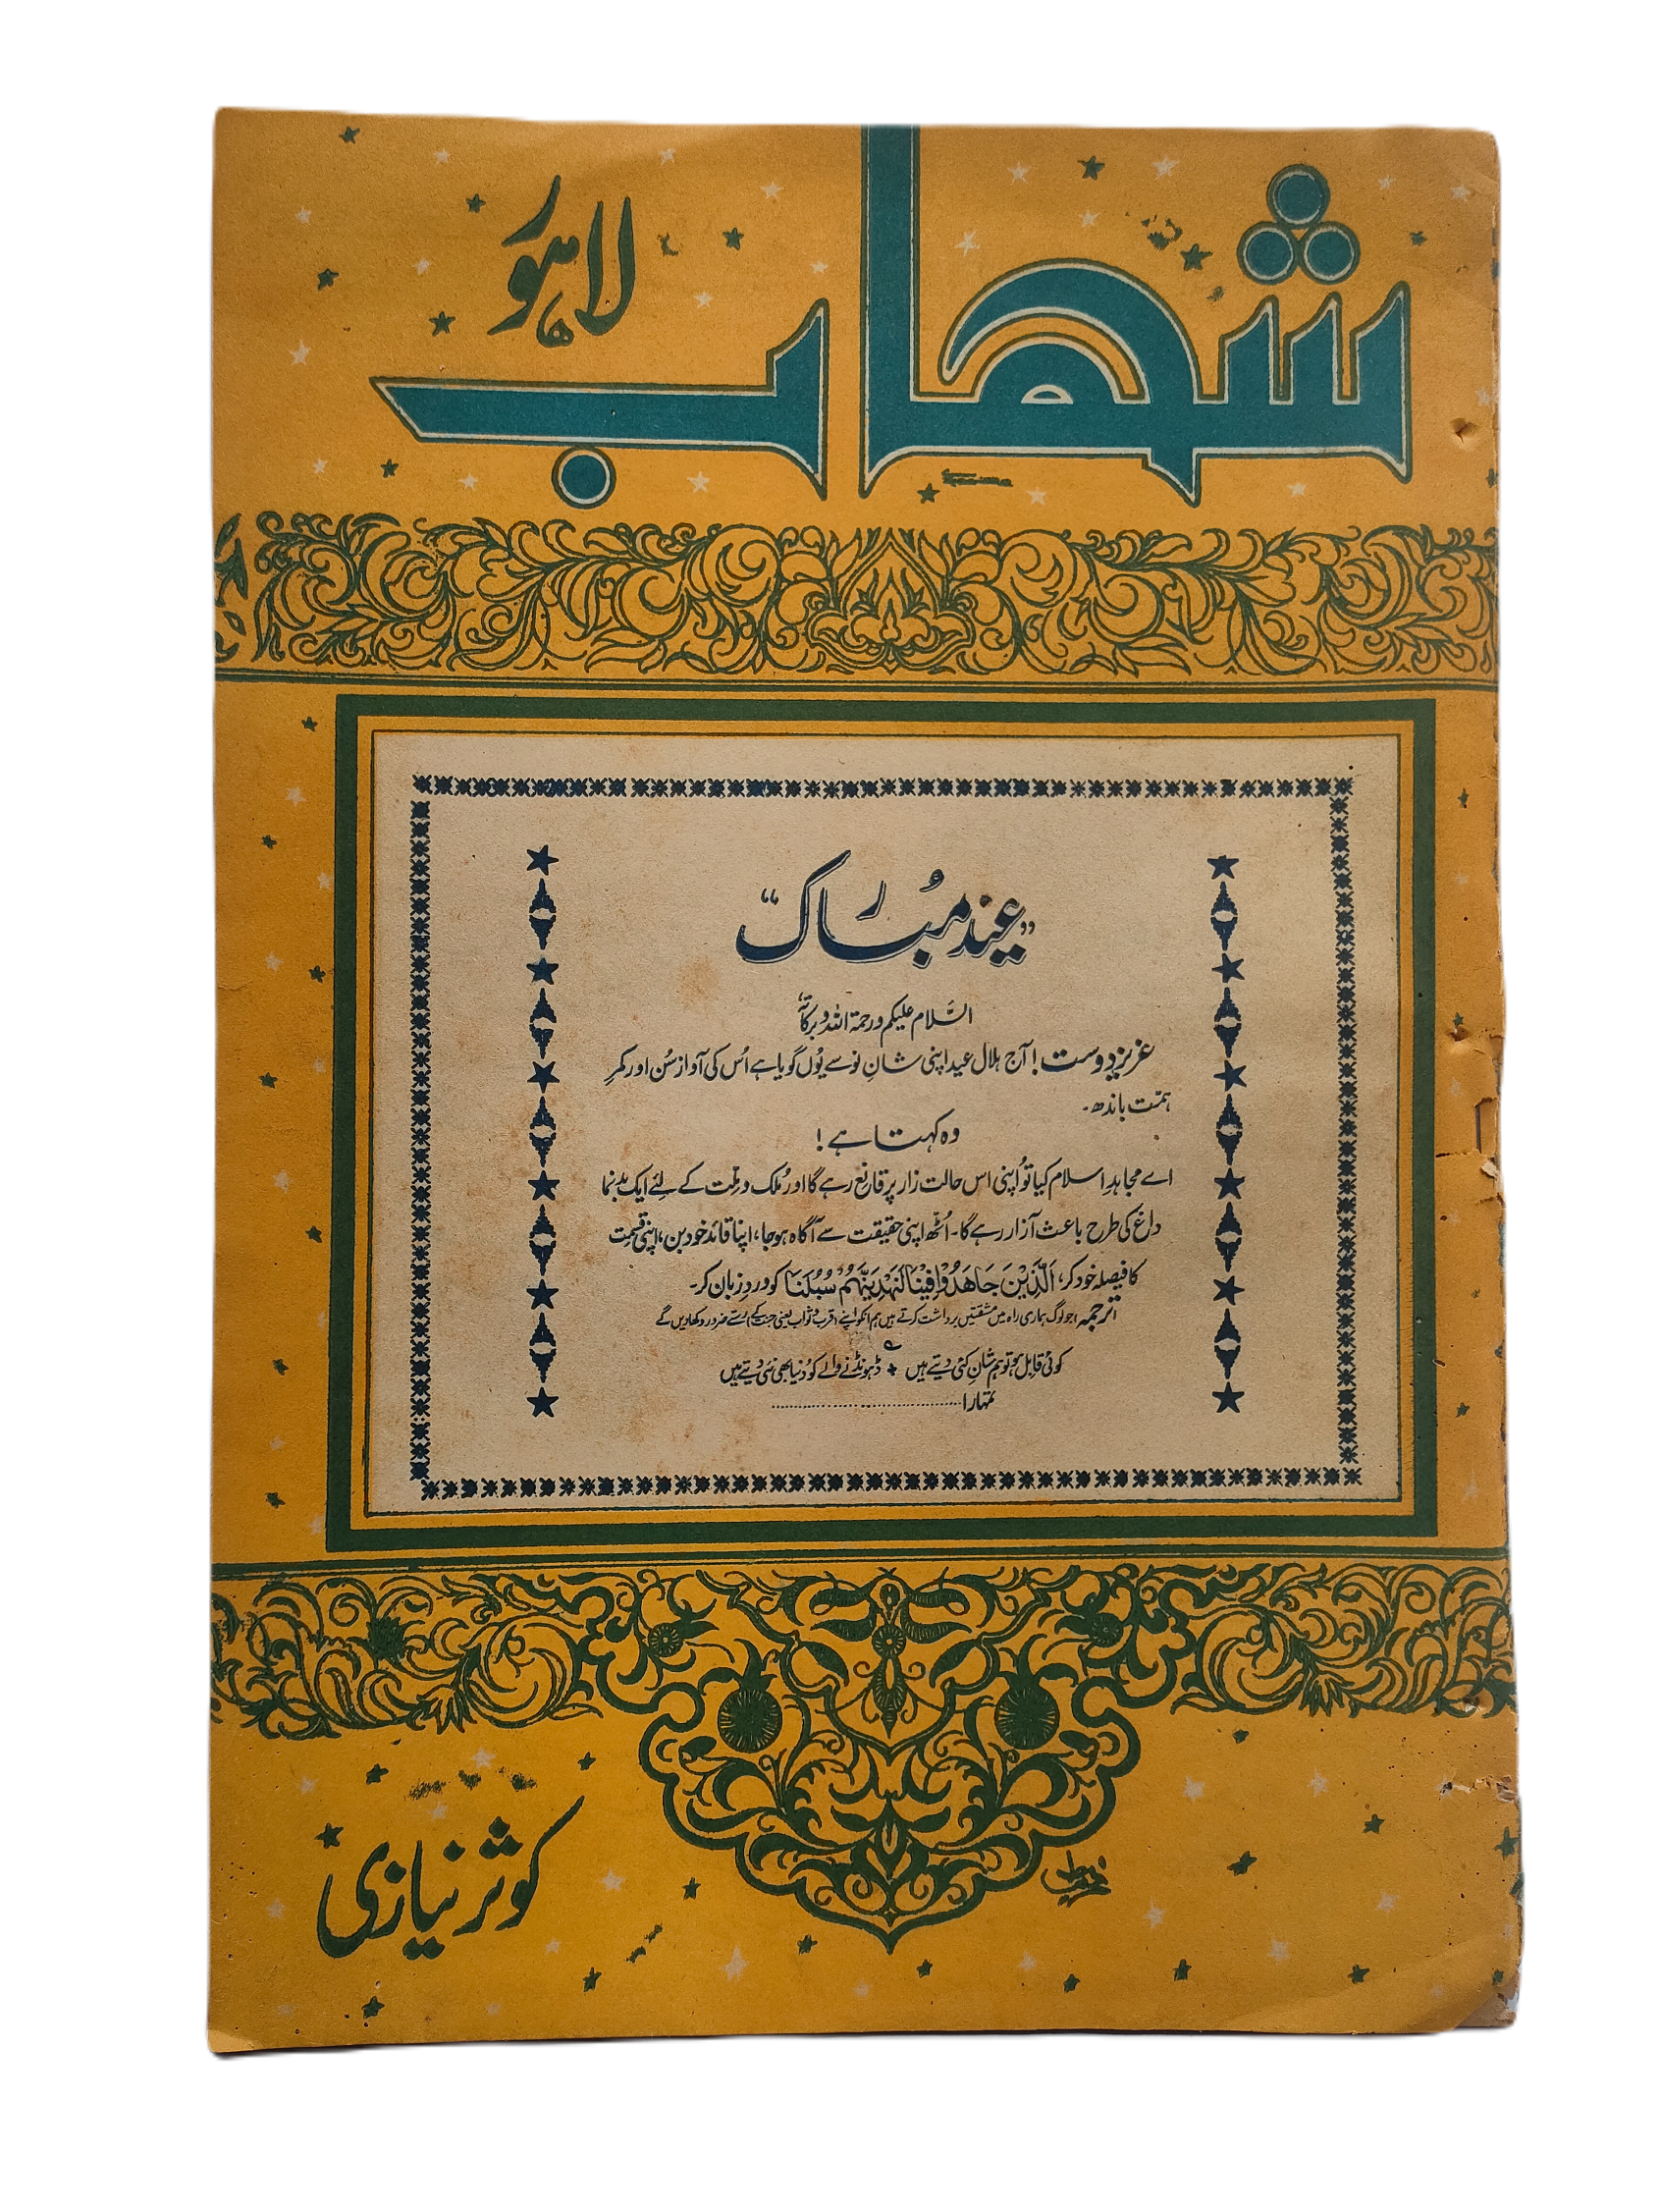 شہاب
لاہور
”عید مبارک“
السّلام علیکم ورحمۃ اللہ وبرکاتہٗ
عزیز دوست! آج ہلال عید اپنی شانِ نو سے یُوں گویا ہے اُس کی آواز سُن اور کمرِ
ہمّت باندھ۔
وہ کہتا ہے!
اے مجاہدِ اسلام کیا تُو اپنی اس حالت زار پر قانع رہے گا اور مُلک و ملّت کے لئے ایک بدنما
داغ کی طرح باعث آزار رہے گا۔ اُٹھ اپنی حقیقت سے آگاہ ہو جا، اپنا قائد خود بن، اپنی قسمت
کا فیصلہ خود کر، اَلَّذِیْنَ جَاھَدُوْا فِیْنَا لَنَھْدِیَنَّھُمْ سُبُلَنَا کو وردِ زبان کر۔
(ترجمہ) جو لوگ ہماری راہ میں مشقتیں برداشت کرتے ہیں ہم انکو اپنے (قرب و ثواب یعنی جنت کے) رستے ضرور دکھا دیں گے
کوئی قابل ہو تو ہم شانِ کئی دیتے ہیں ٭ ڈھونڈنے والے کو دُنیا بھی نئی دیتے ہیں
تمہارا ........................................
کوثر نیازی